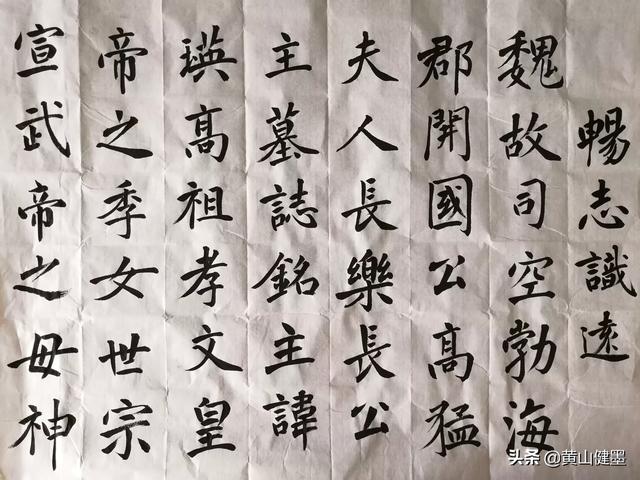 暢志識遠
魏故司空勃海
郡開國公高猛
夫人長樂長公
主墓誌銘主諱
瑛高祖孝文皇
帝之季女世宗
宣武帝之母神
头条 @黄山健墨